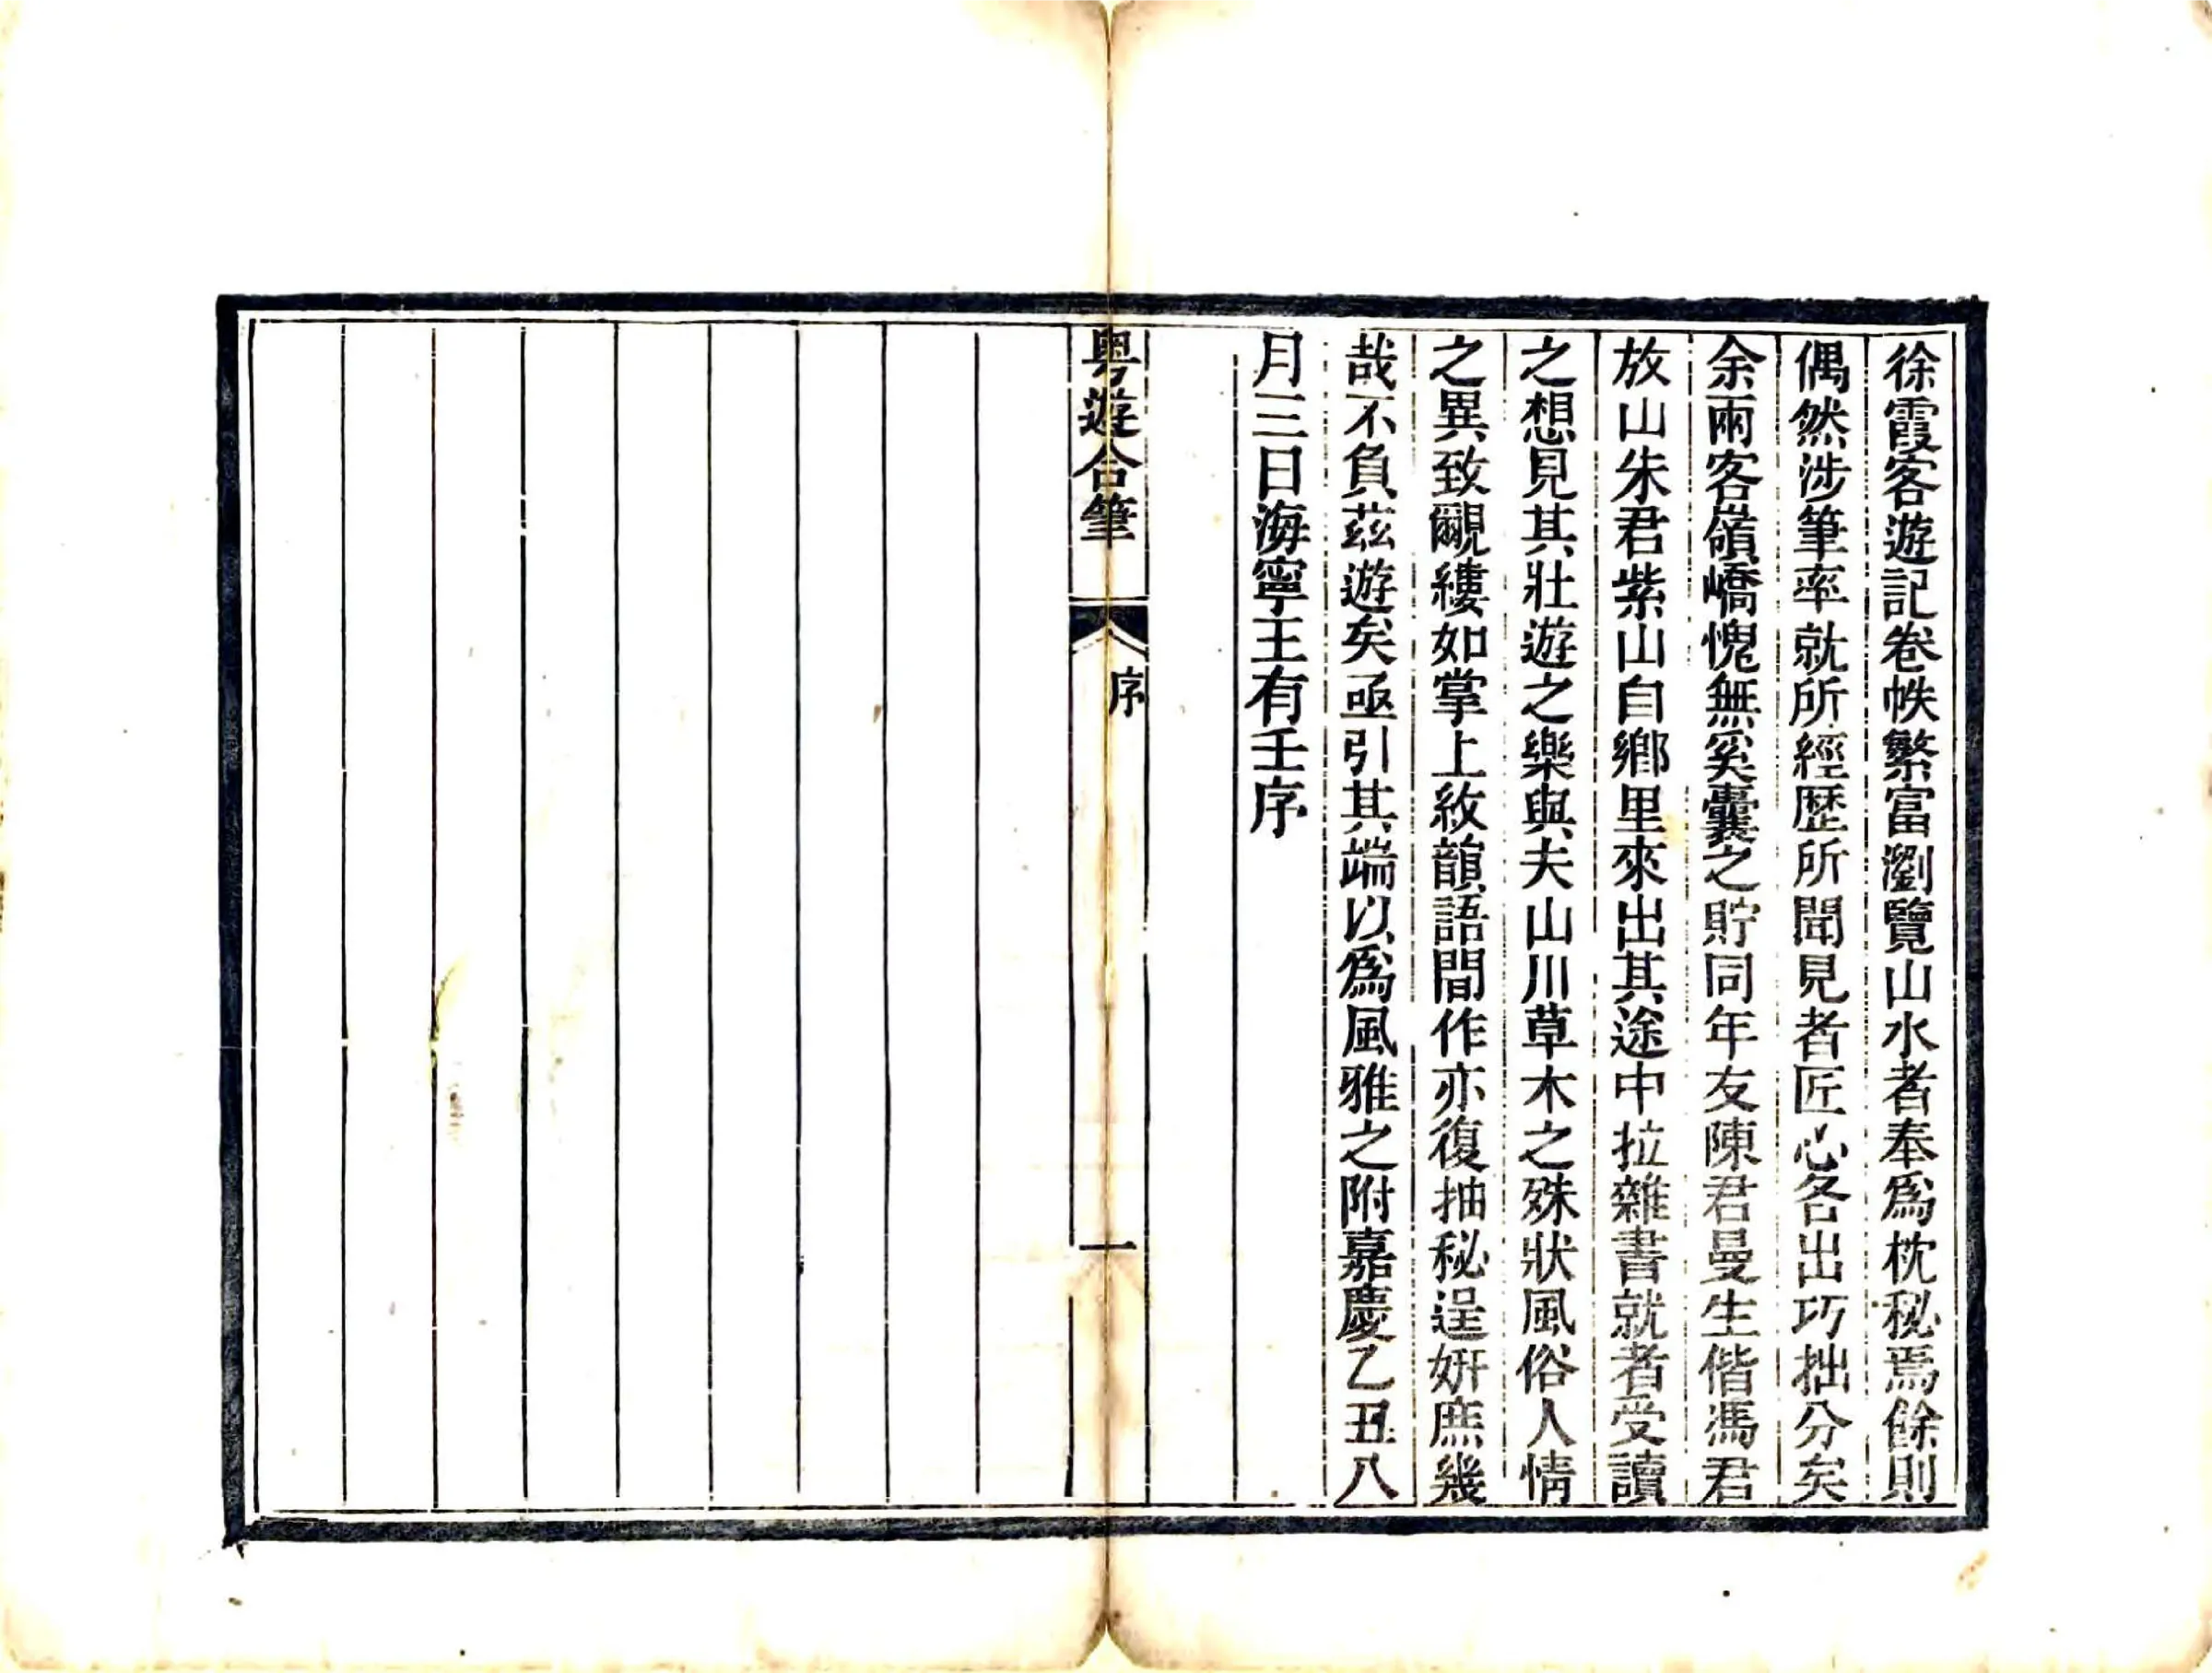 徐霞客遊記卷帙繁富瀏覽山水者奉爲枕秘焉餘則
偶然涉筆率就所經歷所聞見者匠心各出巧拙分矣
余兩客嶺嶠愧無奚囊之貯同年友陳君曼生偕馮君
放山朱君紫山自鄉里來出其途中拉雜書就者受讀
之想見其壯遊之樂與夫山川草木之殊狀風俗人情
之異致覼縷如掌上紋韻語間作亦復抽秘逞妍庶幾
哉不負茲遊矣亟引其端以爲風雅之附嘉慶乙丑八
月三日海寧王有壬序
粵遊合筆
序
一